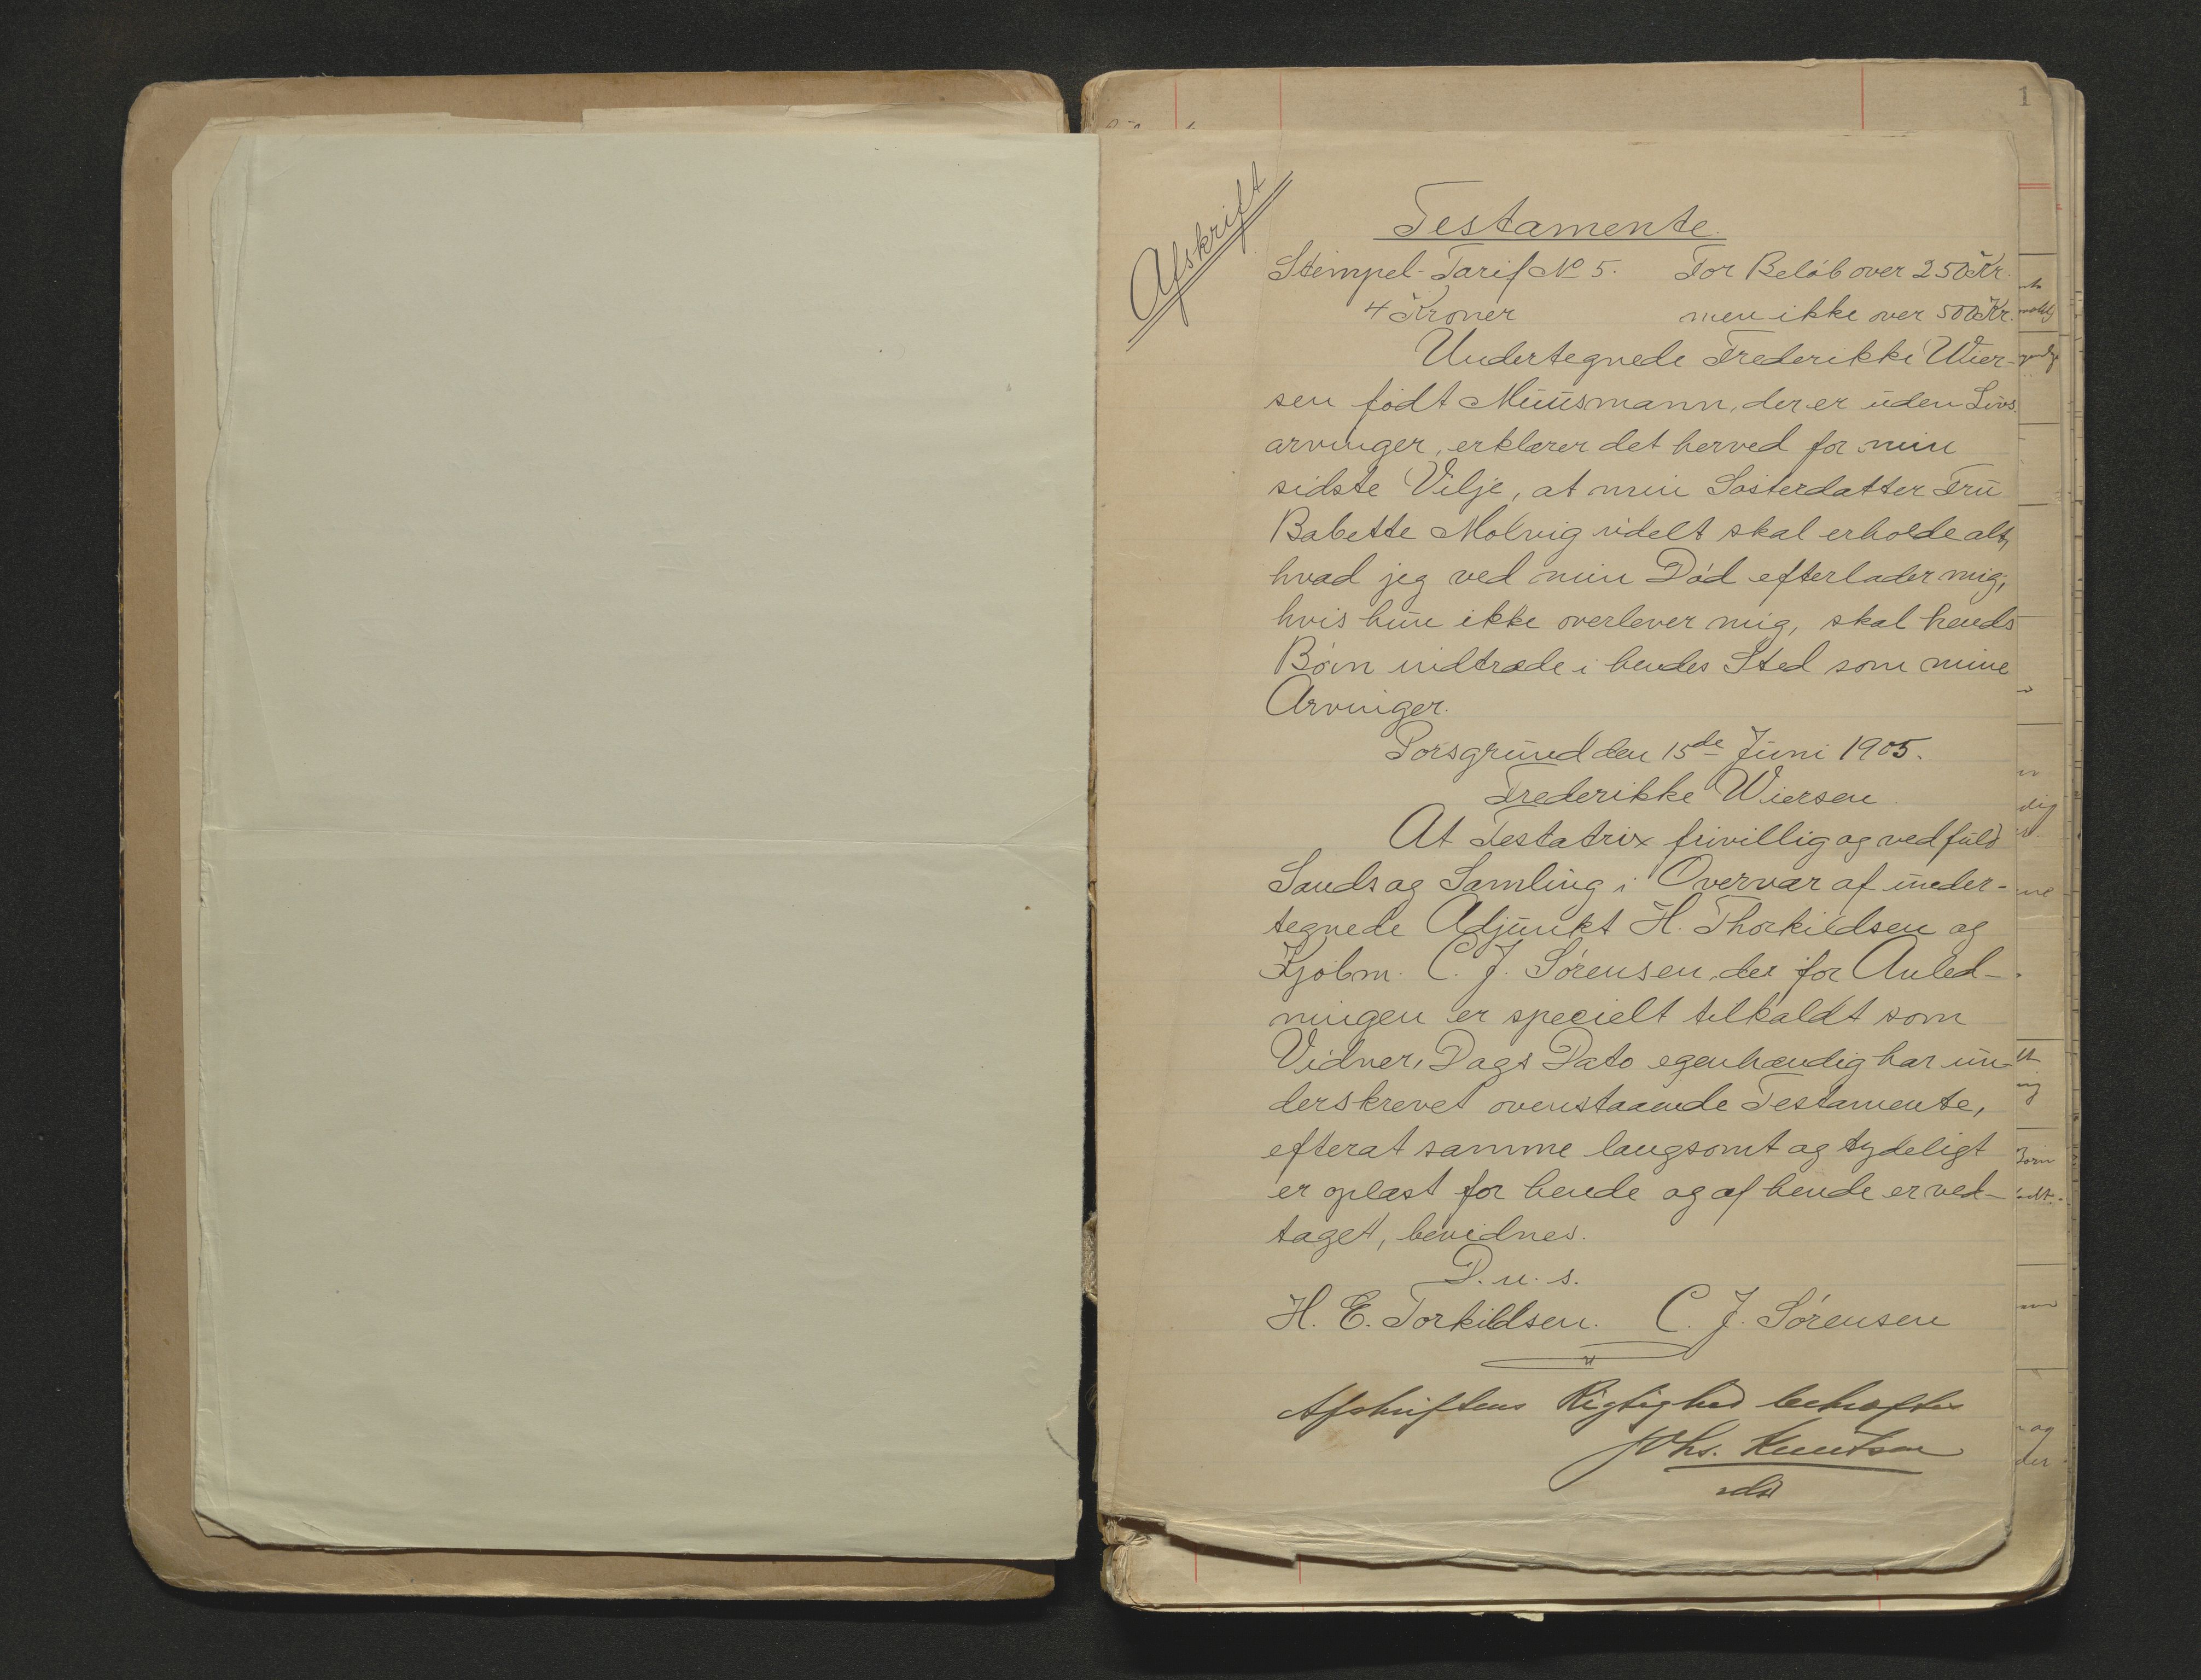 1
Afskrift
Testamente.
Stempel-Tarif No 5. For Beløb over 250 Kr.
4 Kroner men ikke over 500 Kr.
Undertegnede Frederikke Wier-
sen født Muusmann, der er uden Livs
arvinger, erklærer det herved for min
sidste Vilje, at min Søsterdatter Fru
Babette Molvig udelt skal erholde alt,
hvad jeg ved min Død efterlader mig;
hvis hun ikke overlever mig, skal hendes
Børn indtræde i hendes Sted som mine
Arvinger.
Porsgrund den 15de Juni 1905.
Frederikke Wiersen
At Testatrix frivillig og ved fuld
Sands og Samling i Overvær af under-
tegnede Adjunkt H. Thorkildsen og
Kjøbm. C. J. Sørensen, der for Anled-
ningen er specielt tilkaldt som
Vidner, Dags Dato egenhændig har un-
derskrevet ovenstaaende Testamente,
efterat samme langsomt og tydeligt
er oplæst for hende og af hende er ved-
taget, bevidnes.
D. u. s.
H. E. Torkildsen. C. J. Sørensen
Afskriftens Rigtighed bekræftes
Johs. Knutsen